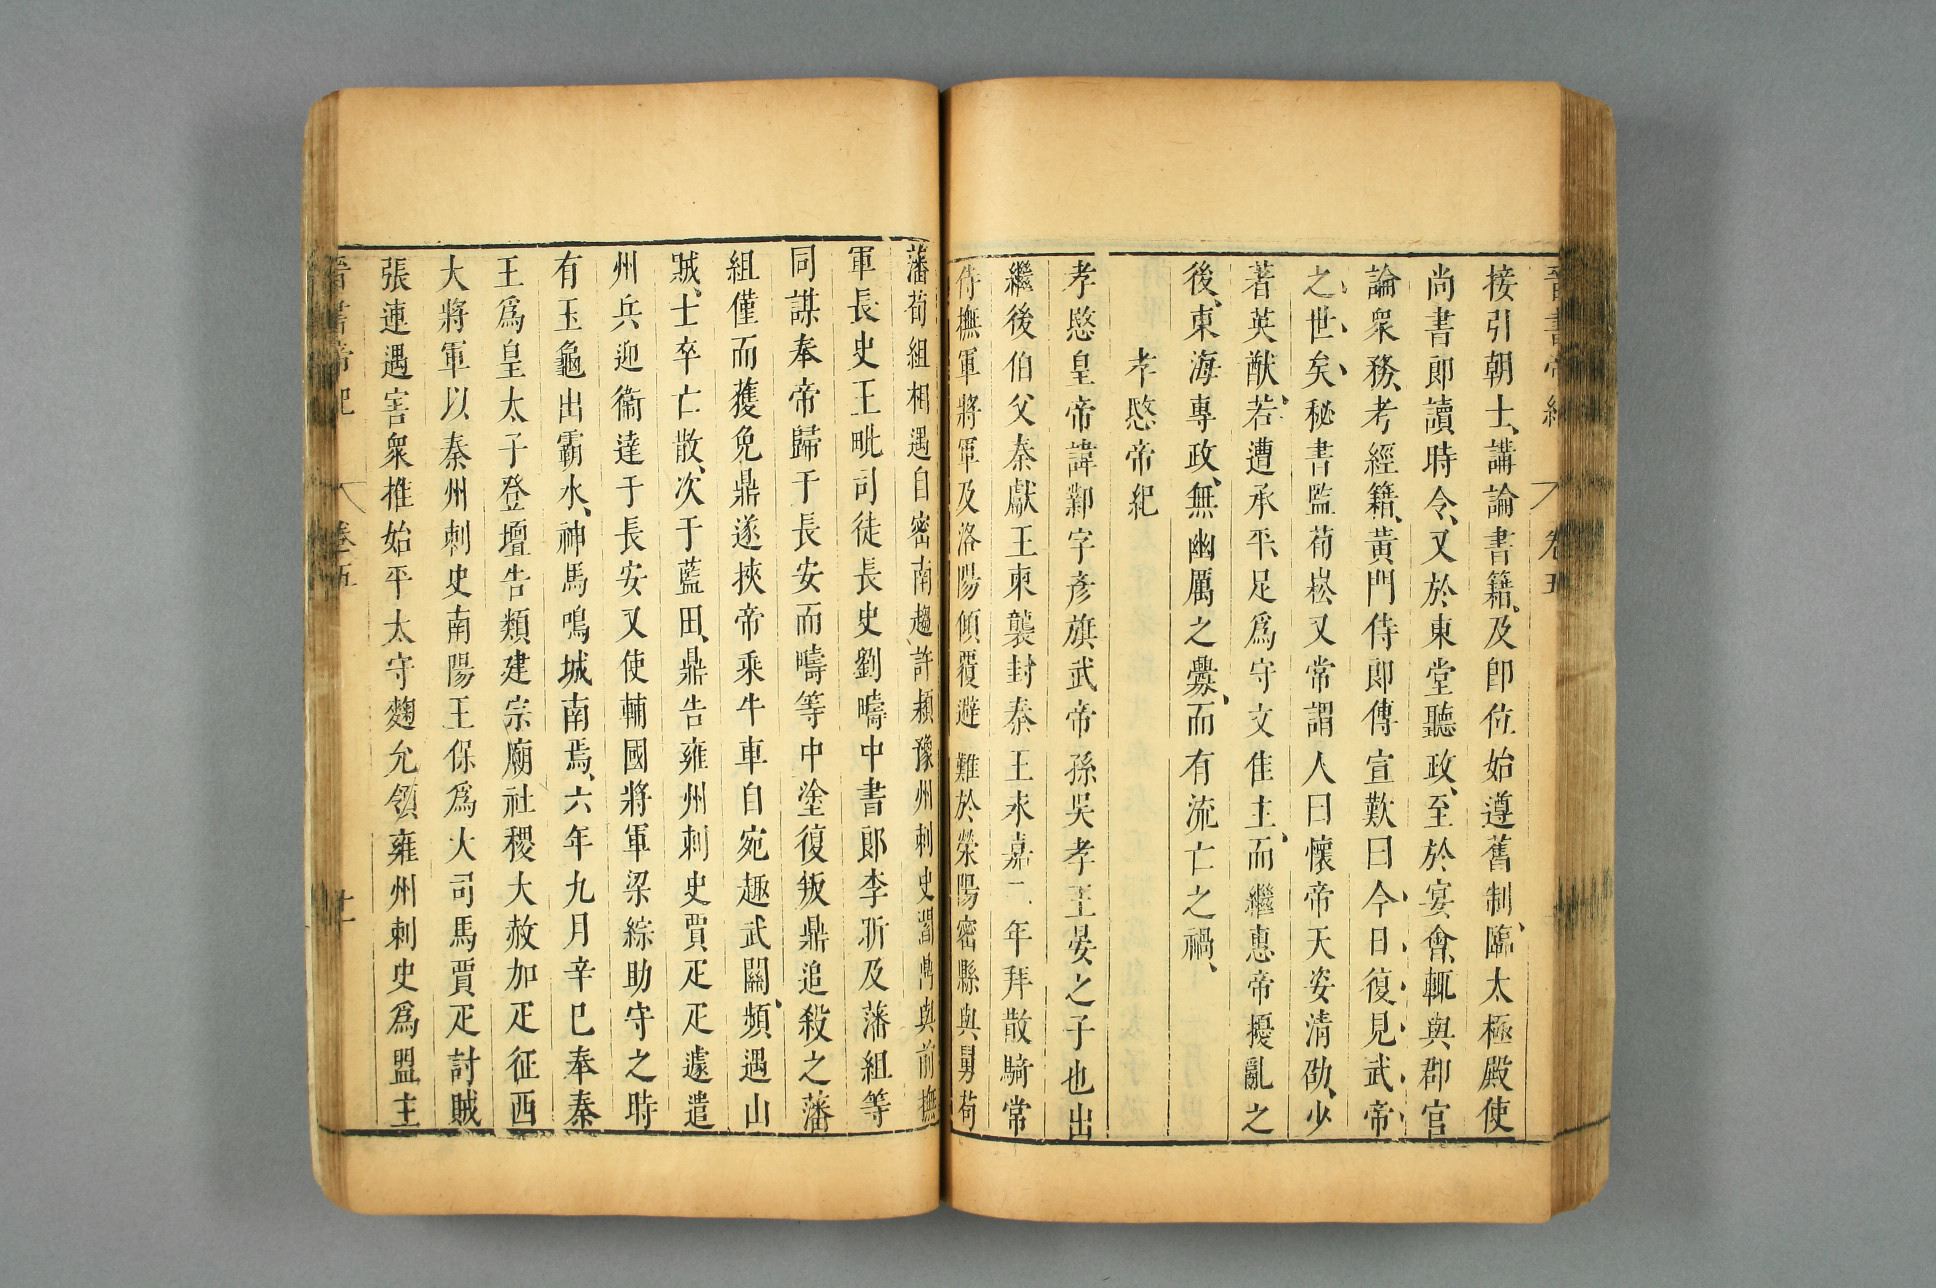 晉書帝紀 卷五
接引朝士、講論書籍、及卽位始遵舊制、臨太極殿使
尚書郎讀時令、又於東堂聽政、至於宴會、輒與郡官
論衆務、考經籍、黃門侍郎傅宣歎曰今日復見武帝
之世矣、秘書監荀崧又常謂人曰懷帝天姿清劭、少
著英猷、若遭承平、足爲守文佳主、而繼惠帝擾亂之
後、東海專政、無幽厲之釁、而有流亡之禍、
孝愍帝紀
孝愍皇帝諱鄴字彥旗武帝孫吳孝王晏之子也出
繼後伯父秦獻王柬襲封秦王永嘉二年拜散騎常
侍撫軍將軍及洛陽傾覆避難於滎陽密縣與舅荀
藩荀組相遇自密南趨許潁豫州刺史閻鼎與前撫
軍長史王毗司徒長史劉疇中書郎李昕及藩組等
同謀奉帝歸于長安而疇等中塗復叛鼎追殺之藩
組僅而獲免鼎遂挾帝乘牛車自宛趣武關、頻遇山
賊、士卒亡散、次于藍田、鼎告雍州刺史賈疋疋遽遣
州兵迎衞達于長安又使輔國將軍梁綜助守之時
有玉龜出霸水、神馬鳴城南焉、六年九月辛巳奉秦
王爲皇太子登壇告類建宗廟社稷大赦加疋征西
大將軍以秦州刺史南陽王保爲大司馬賈疋討賊
張連遇害衆推始平太守麴允領雍州刺史爲盟主
晉書帝紀 卷五 十一